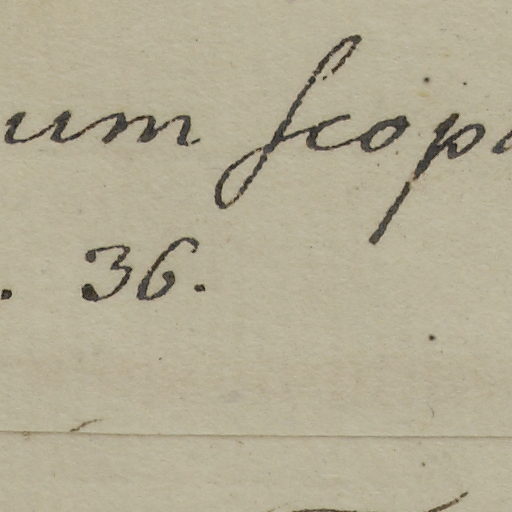 um scop
. 36.